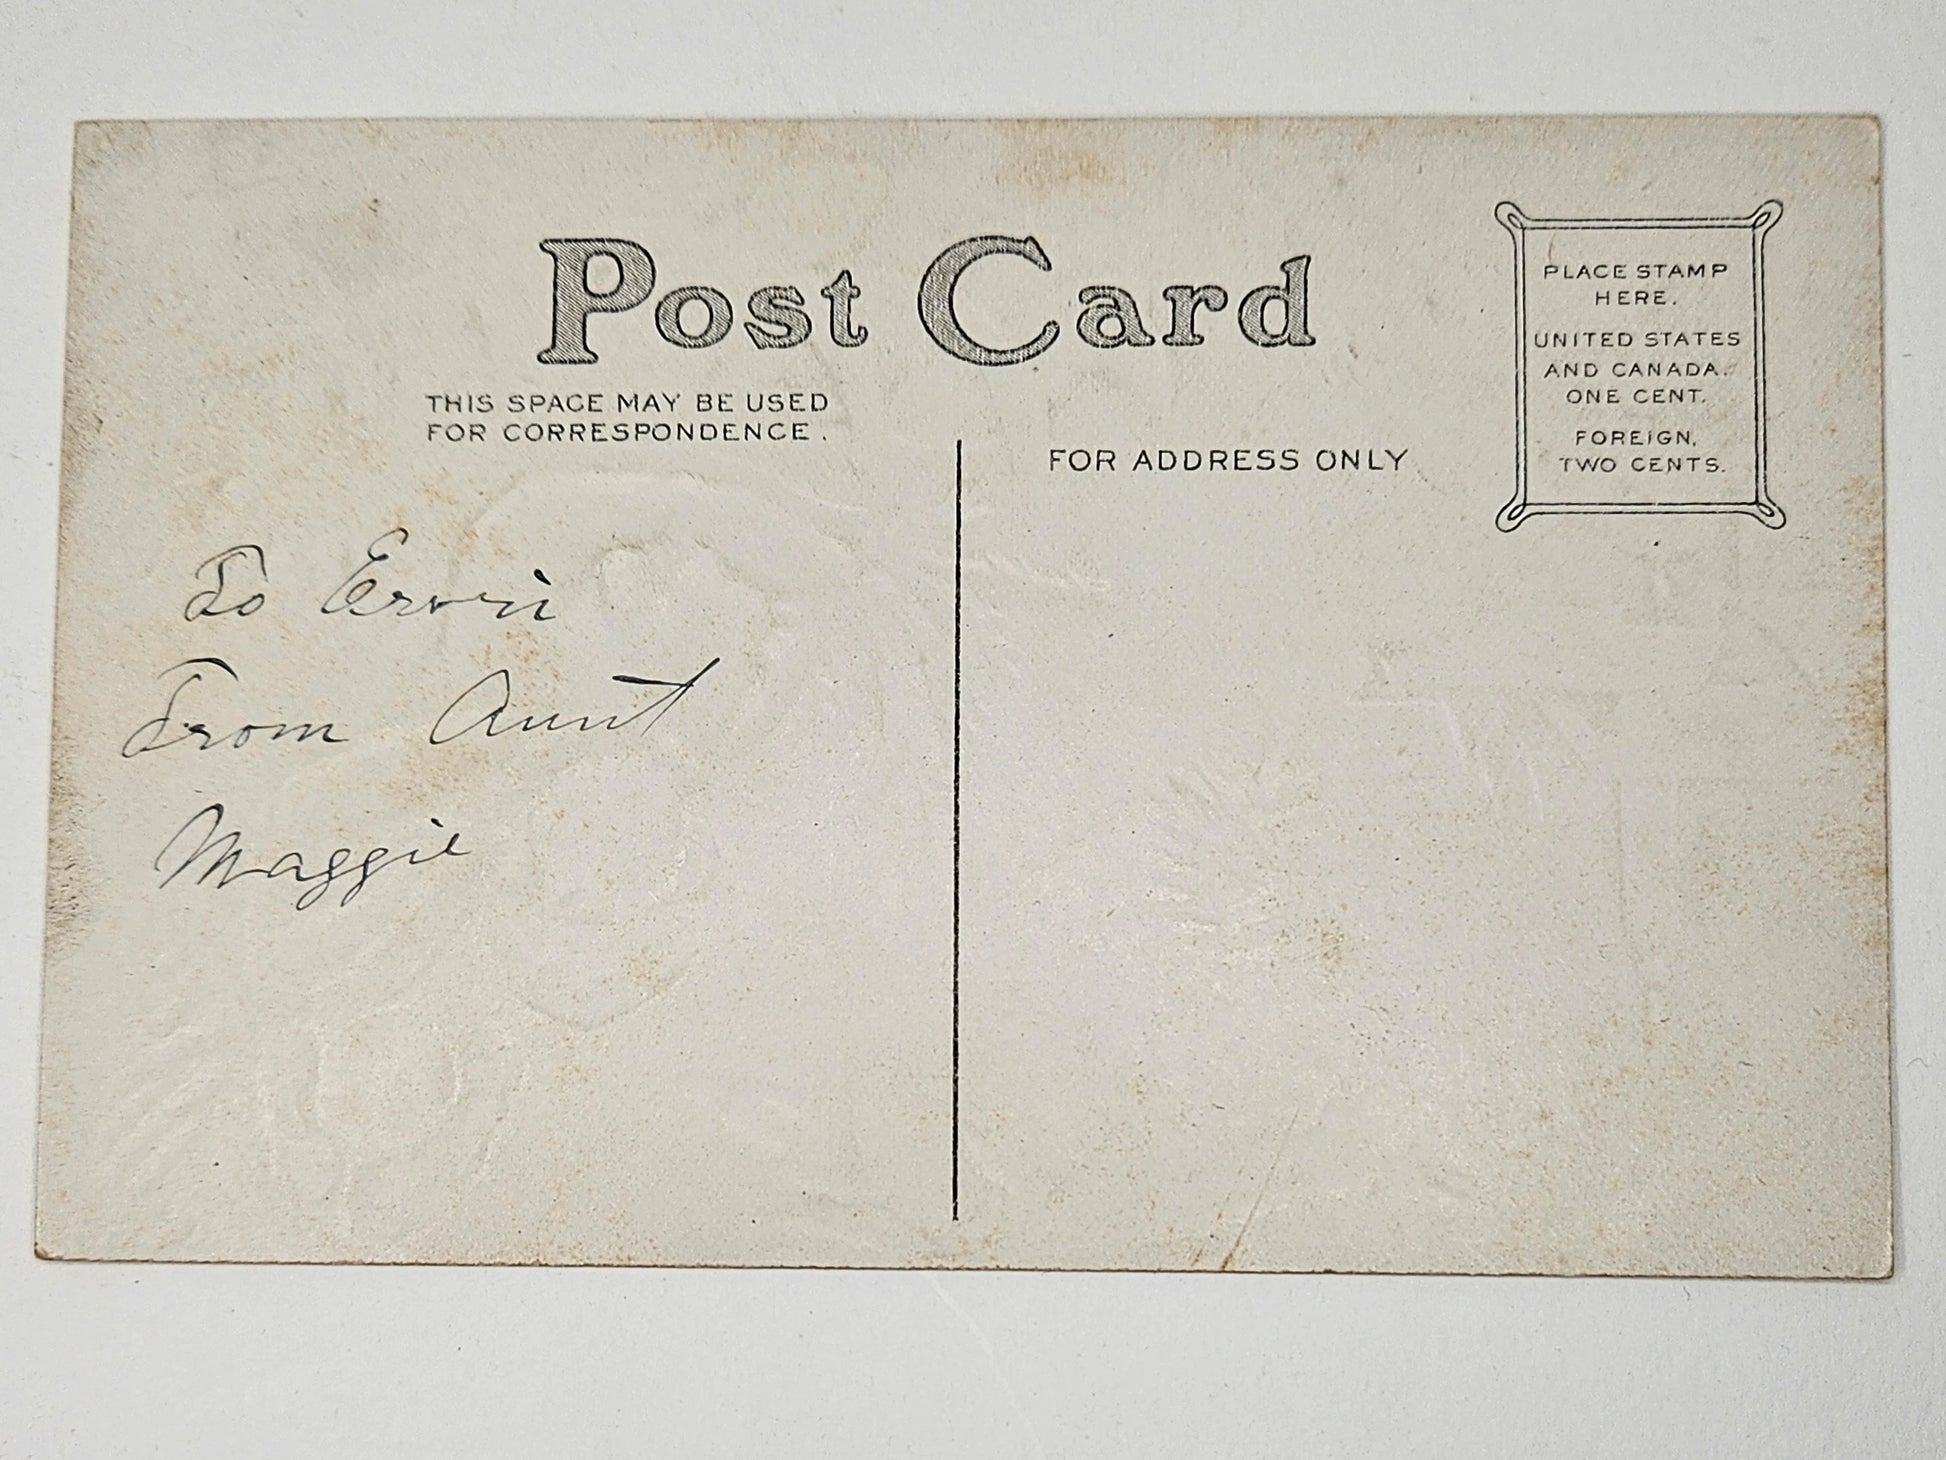 Post Card
THIS SPACE MAY BE USED
FOR CORRESPONDENCE.
FOR ADDRESS ONLY
PLACE STAMP
HERE.
UNITED STATES
AND CANADA.
ONE CENT.
FOREIGN,
TWO CENTS.
To Ervin
From Aunt
Maggie